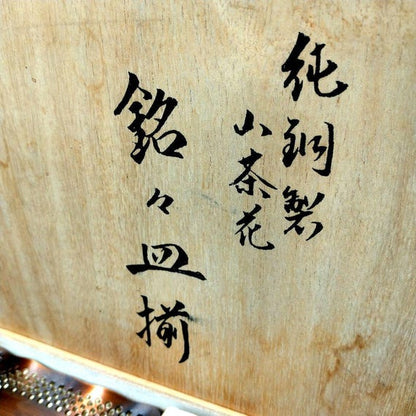 純銅製
小茶花
銘々皿揃